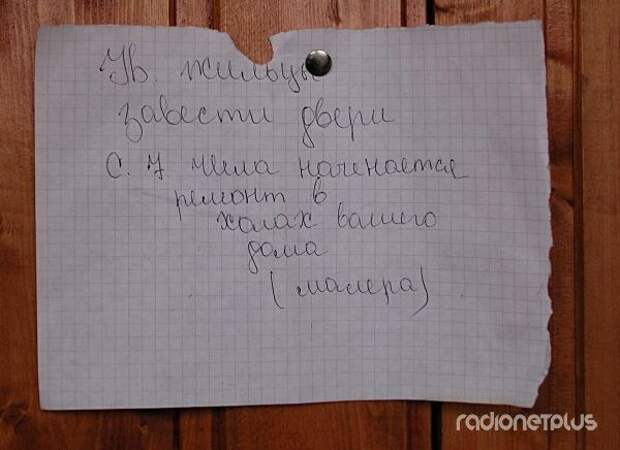 Ув. жильцы
завести двери
С. 7 чила наченается
ремонт в
холах вашего
дома
(малера)
radionetplus